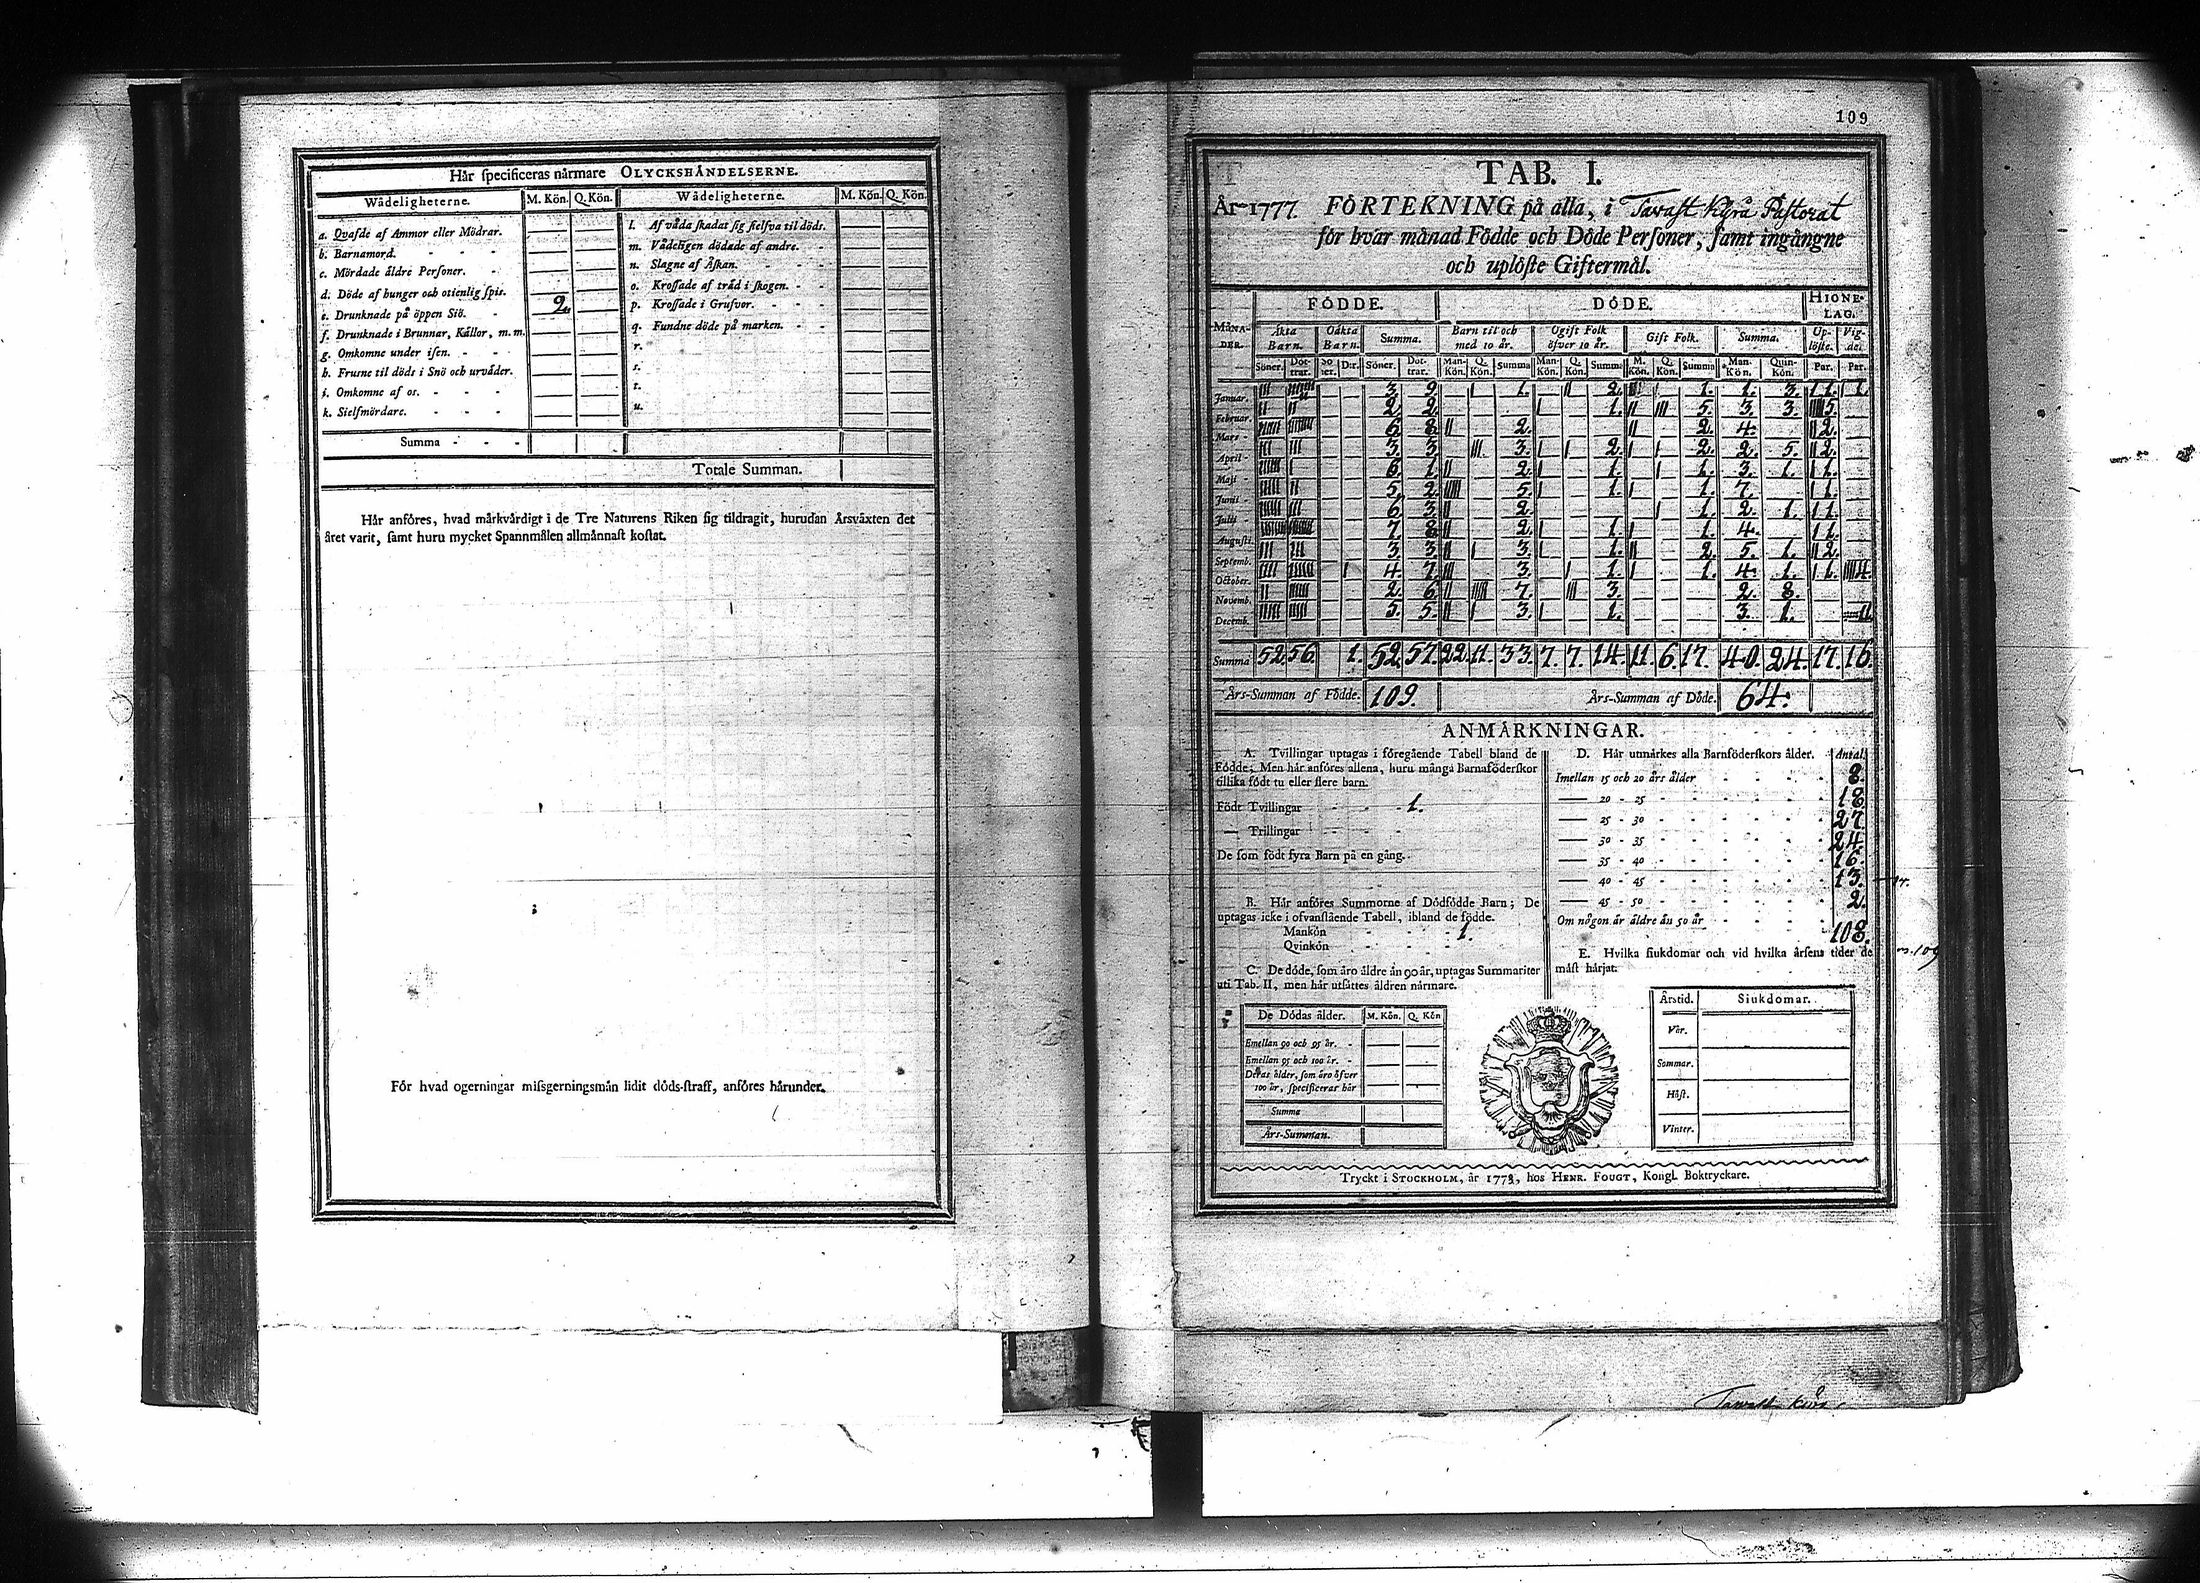 Här specificeras närmare OLYCKSHÄNDELSERNE.
Wådeligheterne. M. Kön. Q. Kön. Wådeligheterne. M. Kön. Q. Kön.
a. Qvafde af Ammor eller Mödrar.
b. Barnamord.
c. Mördade äldre Personer.
d. Döde af hunger och otienlig spis.
e. Drunknade på öppen Siö. 2.
f. Drunknade i Brunnar, Källor, m. m.
g. Omkomne under isen.
h. Frusne til döds i Snö och urväder.
i. Omkomne af os.
k. Sielfmördare.
l. Af våda skadat sig sielfva til döds.
m. Vådeligen dödade af andre.
n. Slagne af Åskan.
o. Krossade af träd i skogen.
p. Krossade i Grufvor.
q. Fundne döde på marken.
r.
s.
t.
u.
Summa
Totale Summan.
Här anföres, hvad märkvärdigt i de Tre Naturens Riken sig tildragit, hurudan Årsväxten det
året varit, samt huru mycket Spannmålen allmännast kostat.
För hvad ogerningar missgerningsmän lidit döds-straff, anföres härunder.
109
TAB. I.
År 1777. FÖRTEKNING på alla, i Tavast Kyrå Pastorat
för hvar månad Födde och Döde Personer, samt ingångne
och uplöste Giftermål.
MÅNADER. FÖDDE. DÖDE. HIONELAG.
Äkta Barn. Oäkta Barn. Summa. Barn til och med 10 år. Ogift Folk öfver 10 år. Gift Folk. Summa. Uplöste. Vigde.
Söner. Döttrar. Söner. D:r. Söner. Döttrar. Man-Kön. Q. Kön. Summa Man-Kön. Q. Kön. Summa M. Kön. Q. Kön. Summa Man-Kön. Quin-Kön. Par. Par.
Januar. 1. 2. 1. 1. 3. 1. 1.
Februar. 2. 2. 1. 5. 3. 3. 5.
Mars 6. 8. 2. 2. 4. 2.
April 3. 3. 3. 2. 2. 2. 5. 2.
Maji 6. 1. 2. 1. 1. 3. 1. 1.
Junii 5. 2. 5. 1. 1. 7. 1.
Julii 6. 3. 2. 1. 2. 1. 1.
Augusti. 7. 8. 2. 1. 1. 4. 1.
Septemb. 3. 3. 3. 1. 2. 5. 1. 2.
October. 4. 7. 3. 1. 1. 4. 1. 1. 4.
Novemb. 2. 6. 7. 3. 2. 8.
Decemb. 5. 5. 3. 1. 3. 1. 11.
Summa 52. 56. 1. 52. 57. 22. 11. 33. 7. 7. 14. 11. 6. 17. 40. 24. 17. 16.
Års-Summan af Födde. 109. Års-Summan af Döde. 64.
ANMÄRKNINGAR.
A. Tvillingar uptagas i föregående Tabell bland de
Födde; Men här anföres allena, huru många Barnaföderskor
tillika födt tu eller flere barn.
Födt Tvillingar 1.
— Trillingar
De som födt fyra Barn på en gång.
B. Här anföres Summorne af Dödfödde Barn; De
uptagas icke i ofvanstående Tabell, ibland de födde.
Mankön 1.
Qvinkön
C. De döde, som äro äldre än 90 år, uptagas Summariter
uti Tab. II, men här utsättes åldren närmare.
De Dödas ålder. M. Kön. Q. Kön
Emellan 90 och 95 år.
Emellan 95 och 100 år.
Deras ålder, som äro öfver
100 år, specificeras här
Summa
Års-Summan.
D. Här utmärkes alla Barnföderskors ålder. Antal.
Imellan 15 och 20 års ålder 8.
— 20 - 25 18.
— 25 - 30 27.
— 30 - 35 24.
— 35 - 40 16.
— 40 - 45 13.
— 45 - 50 2.
Om någon är äldre än 50 år
108.
E. Hvilka siukdomar och vid hvilka årsens tider de
mäst härjat.
Årstid. Siukdomar.
Vår.
Sommar.
Höst.
Vinter.
Tryckt i STOCKHOLM, år 1773, hos HENR. FOUGT, Kongl. Boktryckare.